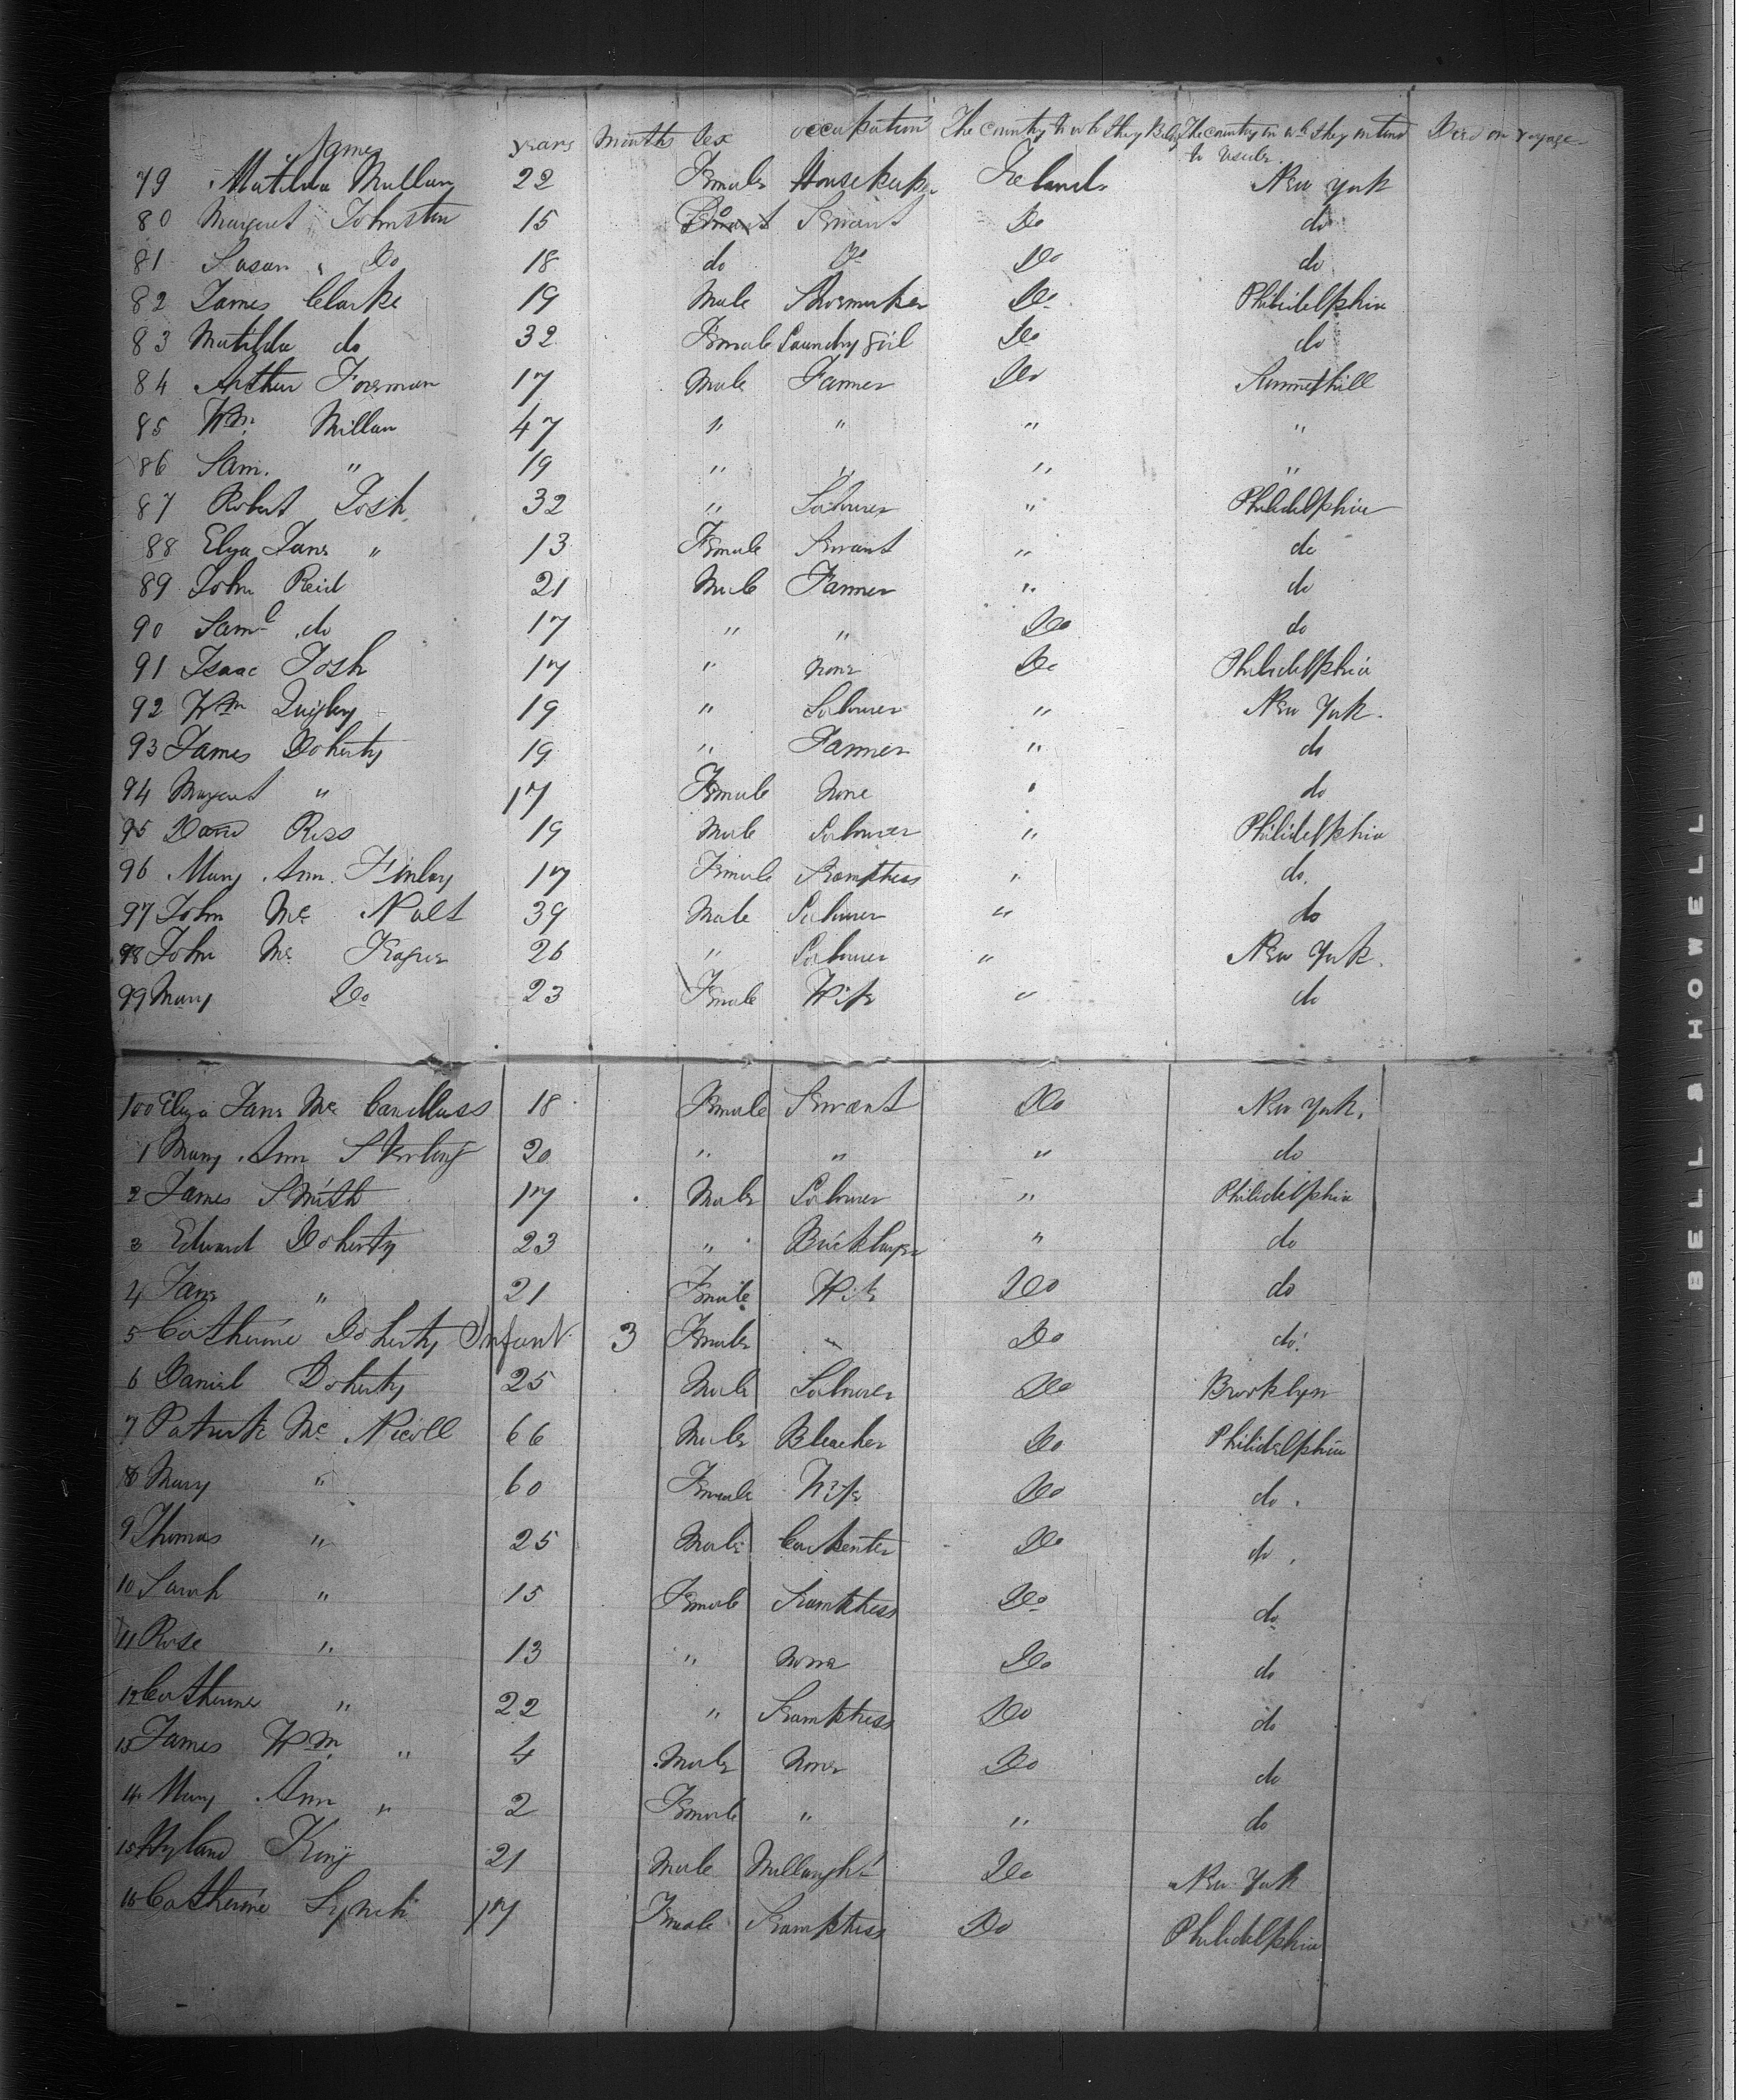 Names years Months Sex occupation The Country to wh they Belong The country in wh they intend to reside Died on voyage
79 Matilda Mullan 22 Female Housekeeper Ireland New York
80 Margaret Johnston 15 Do Servant Do do
81 Susan Do 18 do Do Do do
82 James Clarke 19 Male Shoemaker Do Philidelphia
83 Matilda do 32 Female Laundry girl Do do
84 Arthur Foreman 17 Male Farmer Do Summerhill
85 Wm Millan 47 " " " "
86 Sam. " 19 " " " "
87 Robert Tosh 32 " Labourer " Philidelphia
88 Eliza Jane " 13 Female Servant " do
89 John Reid 21 Male Farmer " do
90 Saml do 17 " " Do do
91 Isaac Tosh 17 " None Do Philidelphia
92 Wm Quigley 19 " Labourer " New York.
93 James Doherty 19 " Farmer " do
94 Margaret " 17 Female None " do
95 David Ross 19 Male Labourer " Philidelphia
96 Mary Ann Finlay 17 Female Seamptress " do.
97 John Mc Nult 39 Male Labourer " do
98 John Mc 26 " Labourer " New York.
99 Mary Do 23 Female Wife " do
100 Eliza Jane Mc Candless 18 Female Servant Do New York.
1 Mary Ann Sterling 20 " " " do
2 James Smith 17 Male Labourer " Philidelphia
3 Edward Doherty 23 " Bricklayer " do
4 Jane " 21 Female Wife Do do
5 Catherine Doherty Infant 3 Female " Do do
6 Daniel Doherty 25 Male Labourer Do Brooklyn
7 Patrick Mc Nicoll 66 Male Bleacher Do Philidelphia
8 Mary " 60 Female Wife Do do.
9 Thomas " 25 Male Carpenter Do do.
10 Sarah " 15 Female Seamptress Do do
11 Rose " 13 " None Do do
12 Catherine " 22 " Seamptress Do do
13 James Wm " 4 Male None Do do
14 Mary Ann " 2 Female " " do
15 Hyland King 21 Male Millwright Do New York
16 Catherine Lynch 17 Female Seamptress Do Philidelphia
BELL & HOWELL